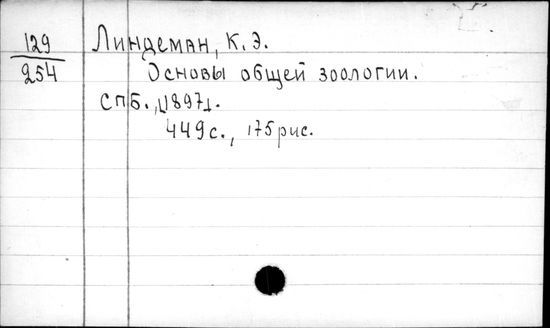 129
254
Линдеман, К. Э.
Основы общей зоологии.
СПб., [1897].
449 с., 175 рис.